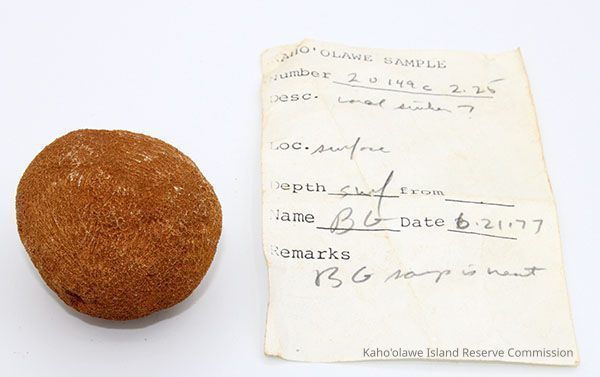 KAHO'OLAWE SAMPLE
Number 20149c 2.25
Desc. coral sinker ?
Loc. surface
Depth surf from
Name BG Date 6.21.77
Remarks
BG says is neat
Kaho'olawe Island Reserve Commission